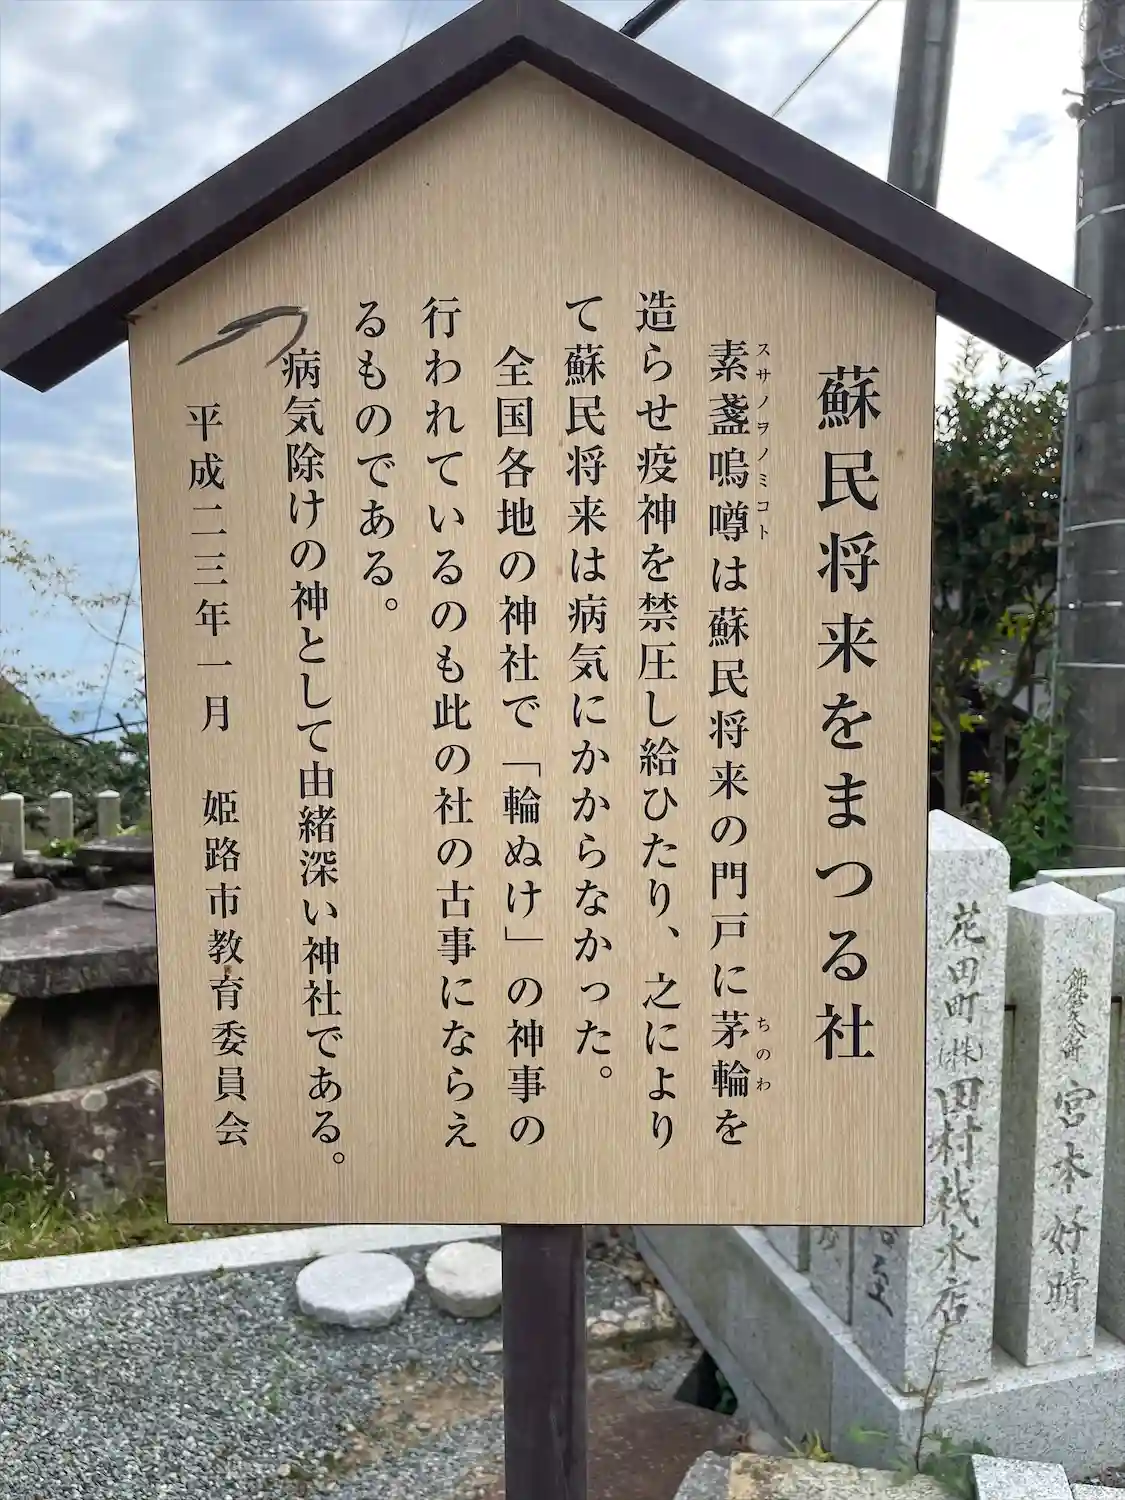 蘇民将来をまつる社
素盞嗚噂は蘇民将来の門戸に茅輪を
スサノヲノミコト
ちのわ
造らせ疫神を禁圧し給ひたり、之により
て蘇民将来は病気にかからなかった。
全国各地の神社で「輪ぬけ」の神事の
行われているのも此の社の古事にならえ
るものである。
病気除けの神として由緒深い神社である。
平成二三年一月 姫路市教育委員会
宮本好晴
花田町㈱田村栽木店